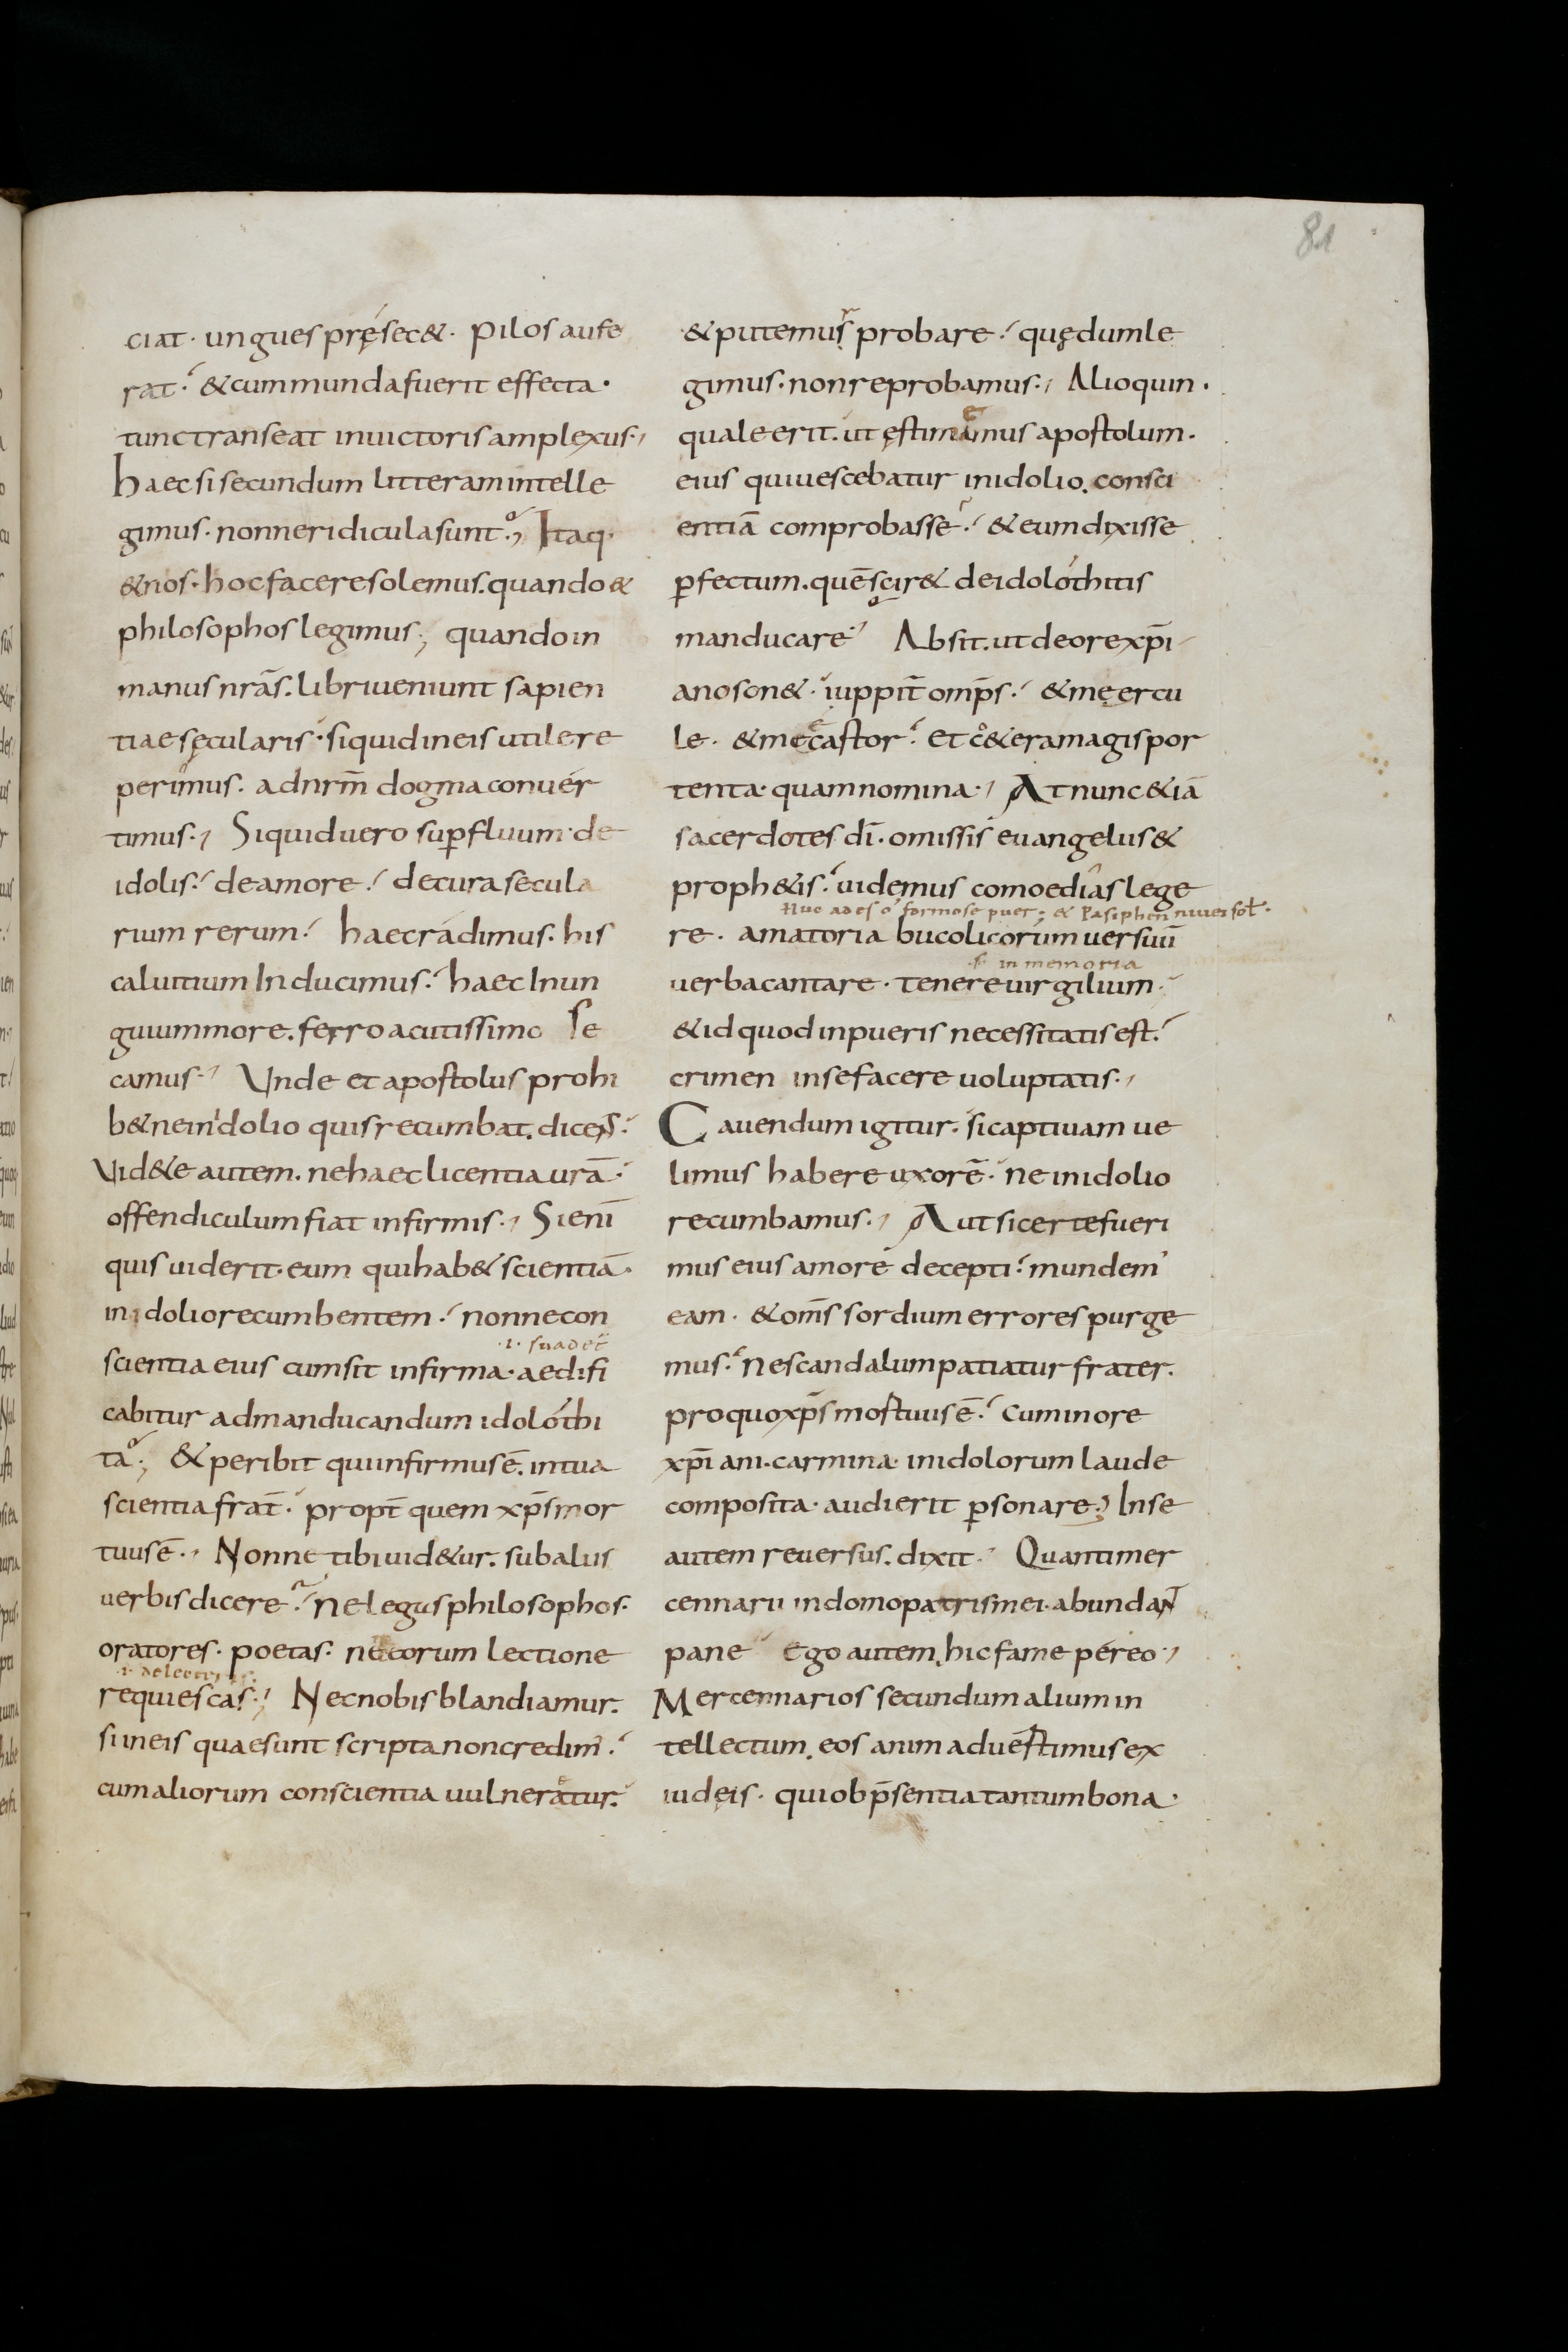 81
ciat · ungues pręsec& · pilos aufe
rat · & cum munda fuerit effecta ·
tunc transeat in uictoris amplexus ·,
haec si secundum litteram intelle
gimus · nonne ridicula sunt ·, Itaq·
& nos · hoc facere solemus . quando &
philosophos legimus ; quando in
manus nrās . libri ueniunt sapien
tiae sęcularis · si quid in eis utile re
perimus . ad nrm̄ dogma conuer
timus ·, Si quid uero sup̱fluum · de
idolis · de amore · de cura secula
rium rerum · haec radimus · his
caluitium Inducimus · haec Inun
guium more . ferro acutissimo Se
camus · Vnde et apostolus prohi
b& ne in idolio quis recumbat . dicens ·
Vid&e autem . ne haec licentia urā ·
offendiculum fiat infirmis ·, Si enī
quis uiderit · eum qui hab& scientiā ·
in idolio recumbentem · nonne con
·i· suadet̄
scientia eius cum sit infirma · aedifi
cabitur ad manducandum idolothi
ta ·, & peribit qui infirmus ē . in tua
scientia frat̄ · propt̄ quem xp̄s mor
tuus ē ·, Nonne tibi uid&ur . sub aliis
uerbis dicere · ne legas philosophos ·
oratores · poetas · nec eorum lectione
requiescas ·, Nec nobis blandiamur .
si in eis quae sunt scripta non credim̄ ·
cum aliorum conscientia uulneratur ·
& putemur probare · quę dum le
gimus · non reprobamus ·, Alioquin ·
quale erit . ut ęstimemus apostolum ·
eius qui uescebatur in idolio . consci
entiā comprobasse · & eum dixisse
p̱fectum . quē scir& de idolothitis
manducare · Absit . ut de ore xp̄i
ano son& · iuppit̄ omp̄s · & męercu
le · & mecastor · et cęt&era magis por
tenta · quam nomina ·, At nunc &iā
sacerdotes dī · omissis euangeliis &
proph&is · uidemus comoedias lege
Huc ades o formose puer ; & Pasiphen niuei sol̄ ·
re · amatoria bucolicorum uersuū
·s· in memoria
uerba cantare · tenere uirgilium ·
& id quod in pueris necessitatis est ·
crimen in se facere uoluptatis ·,
Cauendum igitur · si captiuam ue
limus habere uxorē · ne in idolio
recumbamus ·, Aut si certe fueri
mus eius amore decepti · mundem'
eam · & om̄s sordium errores purge
mus · ne scandalum patiatur frater .
pro quo xp̄s mortuus ē · cum in ore
xp̄iani · carmina · in idolorum laude
composita · audierit p̱sonare · In se
autem reuersus . dixit · Quanti mer
cennarii in domo patris mei · abundant
pane Ego autem . hic fame pereo ·,
Mercennarios secundum alium in
tellectum . eos animaduertimus ex
iudęis · qui ob p̄sentia tantum bona ·